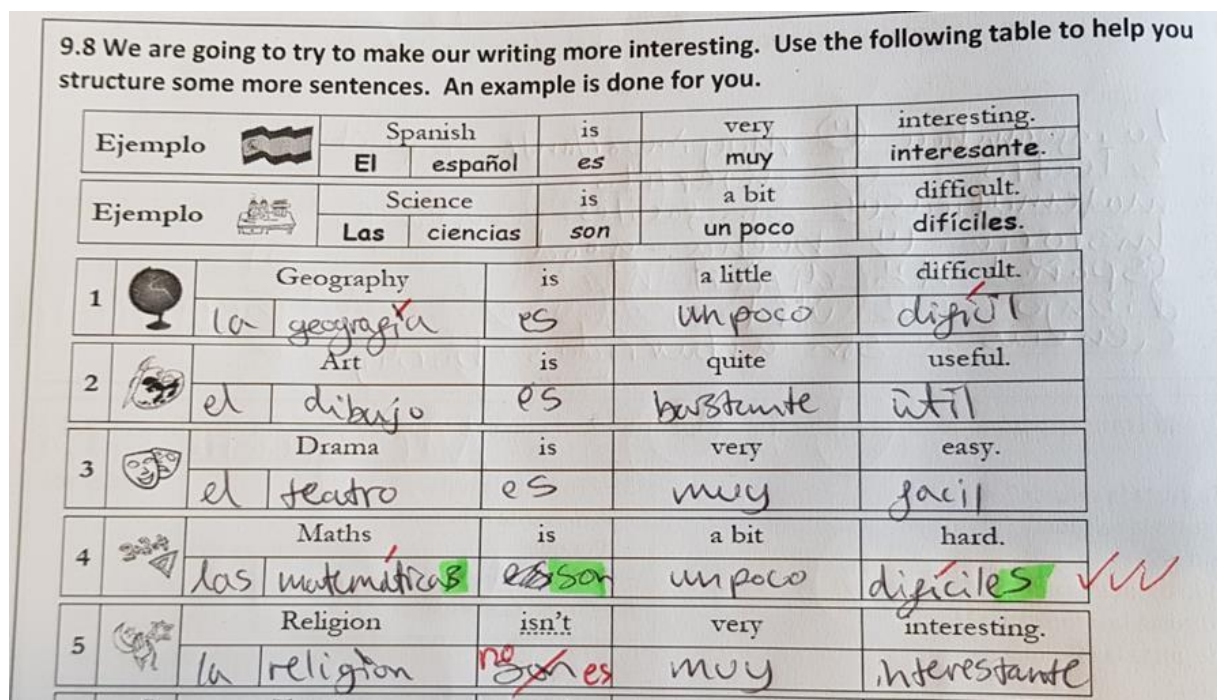 9.8 We are going to try to make our writing more interesting. Use the following table to help you
structure some more sentences. An example is done for you.
Ejemplo Spanish is very interesting.
El español es muy interesante.
Ejemplo Science is a bit difficult.
Las ciencias son un poco difíciles.
1 Geography is a little difficult.
la geografía es un poco difícil
2 Art is quite useful.
el dibujo es bastante útil
3 Drama is very easy.
el teatro es muy facil
4 Maths is a bit hard.
las matemáticas es son un poco difíciles
5 Religion isn't very interesting.
la religion no son es muy interestante